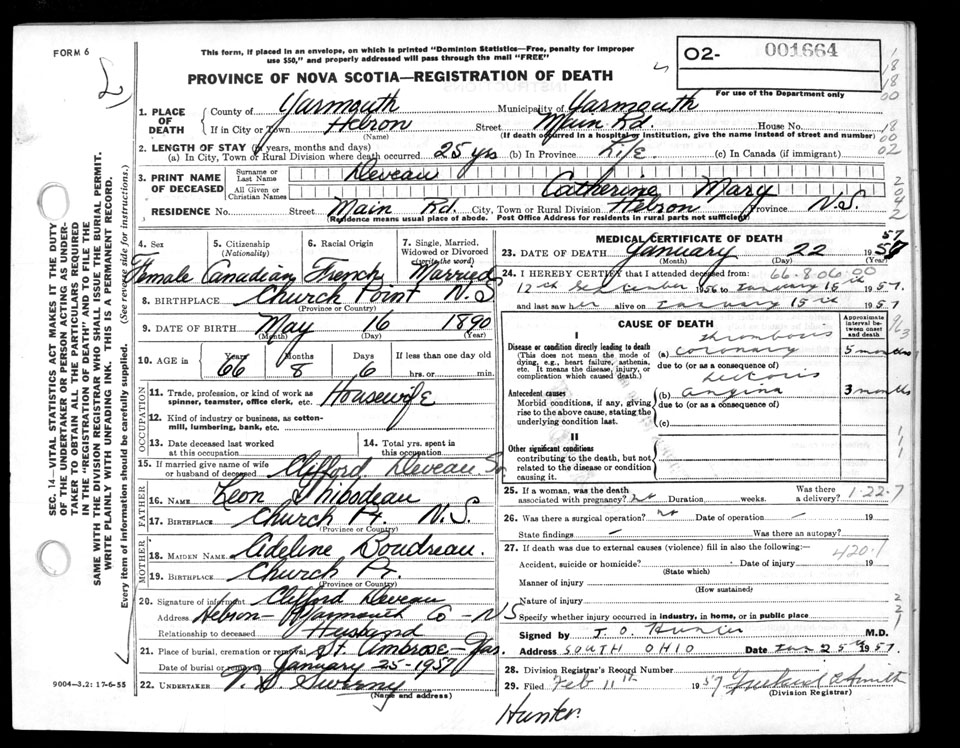 FORM 6
This form, if placed in an envelope, on which is printed "Dominion Statistics—Free, penalty for improper
use $50," and properly addressed will pass through the mail "FREE"
PROVINCE OF NOVA SCOTIA—REGISTRATION OF DEATH
02- 001664
For use of the Department only
1. PLACE OF DEATH County of Yarmouth Municipality of Yarmouth
If in City or Town Hebron Street Main Rd. House No.
(Name) (If death occurred in a hospital or institution, give the name instead of street and number)
2. LENGTH OF STAY (in years, months and days)
(a) In City, Town or Rural Division where death occurred 25 yrs (b) In Province Life (c) In Canada (if immigrant)
3. PRINT NAME OF DECEASED Surname or Last Name Deveau
All Given or Christian Names Catherine Mary
RESIDENCE No. Street Main Rd. City, Town or Rural Division Hebron Province N.S.
(Residence means usual place of abode. Post Office Address for residents in rural parts not sufficient)
4. Sex Female
5. Citizenship (Nationality) Canadian
6. Racial Origin French
7. Single, Married, Widowed or Divorced (write the word) Married
8. BIRTHPLACE Church Point N.S
(Province or Country)
9. DATE OF BIRTH May 16 1890
(Month) (Day) (Year)
10. AGE in Years 66 Months 8 Days 6 If less than one day old hrs. or min.
OCCUPATION
11. Trade, profession, or kind of work as spinner, teamster, office clerk, etc. Housewife
12. Kind of industry or business, as cotton-mill, lumbering, bank, etc.
13. Date deceased last worked at this occupation
14. Total yrs. spent in this occupation
15. If married give name of wife or husband of deceased Clifford Deveau Sr
FATHER
16. NAME Leon Thibodeau
17. BIRTHPLACE Church Pt. N.S.
(Province or Country)
MOTHER
18. MAIDEN NAME Adeline Boudreau.
19. BIRTHPLACE Church Pt.
(Province or Country)
20. Signature of informant Clifford Deveau
Address Hebron Yarmouth Co - N S
Relationship to deceased Husband
21. Place of burial, cremation or removal St. Ambrose - Yar.
Date of burial or removal January 25 - 1957
22. UNDERTAKER V. S. Sweeny
(Name and address)
MEDICAL CERTIFICATE OF DEATH
23. DATE OF DEATH January 22 1957
(Month) (Day) (Year)
24. I HEREBY CERTIFY that I attended deceased from: 66-8-06-00
12th September 1956 to January 15th 1957.
and last saw her alive on January 15th 1957
CAUSE OF DEATH
Approximate interval between onset and death
I
Disease or condition directly leading to death
(This does not mean the mode of dying, e.g., heart failure, asthenia, etc. It means the disease, injury, or complication which caused death.)
(a) coronary thrombosis 5 months
due to (or as a consequence of)
Antecedent causes
Morbid conditions, if any, giving rise to the above cause, stating the underlying condition last.
(b) angina pectoris 3 months
due to (or as a consequence of)
(c)
II
Other significant conditions
contributing to the death, but not related to the disease or condition causing it.
25. If a woman, was the death associated with pregnancy? no Duration weeks. Was there a delivery? 1-22-7
26. Was there a surgical operation no Date of operation - 19
State findings - Was there an autopsy?
27. If death was due to external causes (violence) fill in also the following:— 420.1
Accident, suicide or homicide? Date of injury 19
(State which)
Manner of injury
(How sustained)
Nature of injury
Specify whether injury occurred in industry, in home, or in public place
Signed by T. O. Hunter M.D.
Address SOUTH OHIO Date Jan 25th 1957.
28. Division Registrar's Record Number
29. Filed Feb 11th 1957
(Division Registrar)
Hunter.
SEC. 14—VITAL STATISTICS ACT MAKES IT THE DUTY
OF THE UNDERTAKER OR PERSON ACTING AS UNDER-
TAKER TO OBTAIN ALL THE PARTICULARS REQUIRED
IN THE "REGISTRATION OF DEATH" AND TO FILE THE
SAME WITH THE DIVISION REGISTRAR WHO SHALL ISSUE THE BURIAL PERMIT.
WRITE PLAINLY WITH UNFADING INK. THIS IS A PERMANENT RECORD.
Every item of information should be carefully supplied. (See reverse side for instructions.)
9004—3.2: 17-6-55